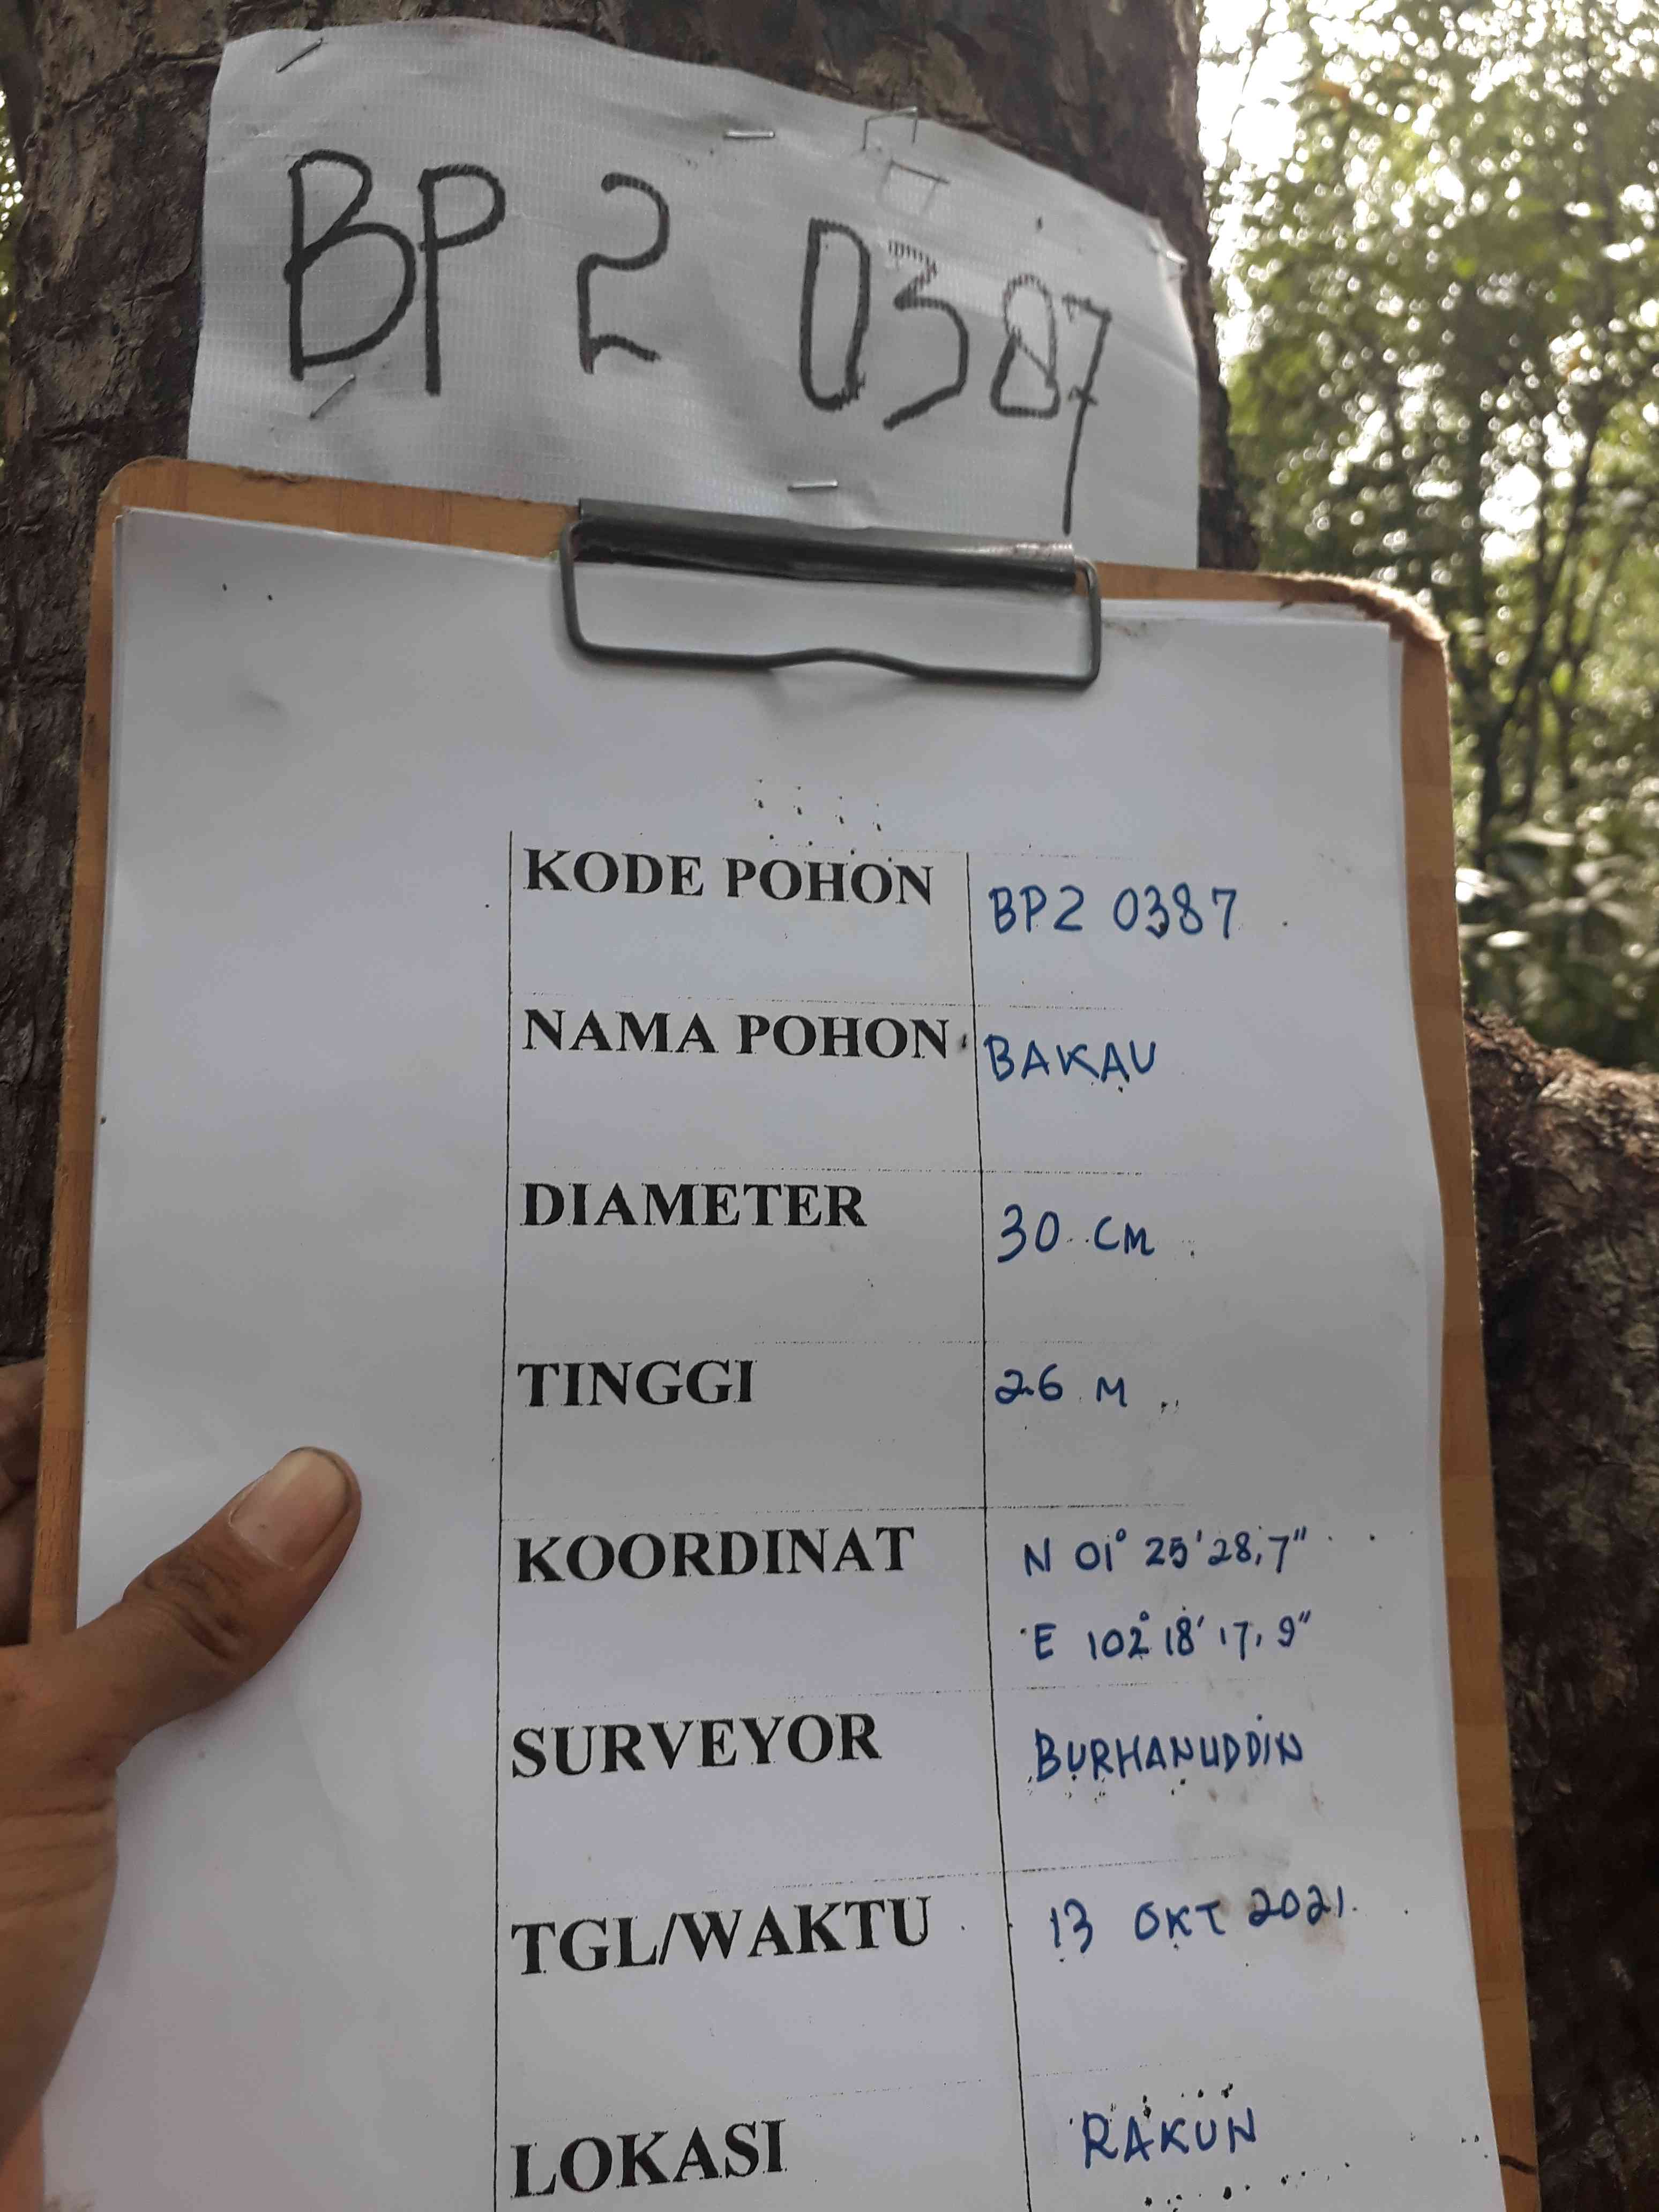 BP 2 0387
KODE POHON BP2 0387
NAMA POHON BAKAU
DIAMETER 30 CM
TINGGI 26 M
KOORDINAT N 01° 25' 28,7"
E 102° 18' 17,9"
SURVEYOR BURHANUDDIN
TGL/WAKTU 13 OKT 2021
LOKASI RAKUN